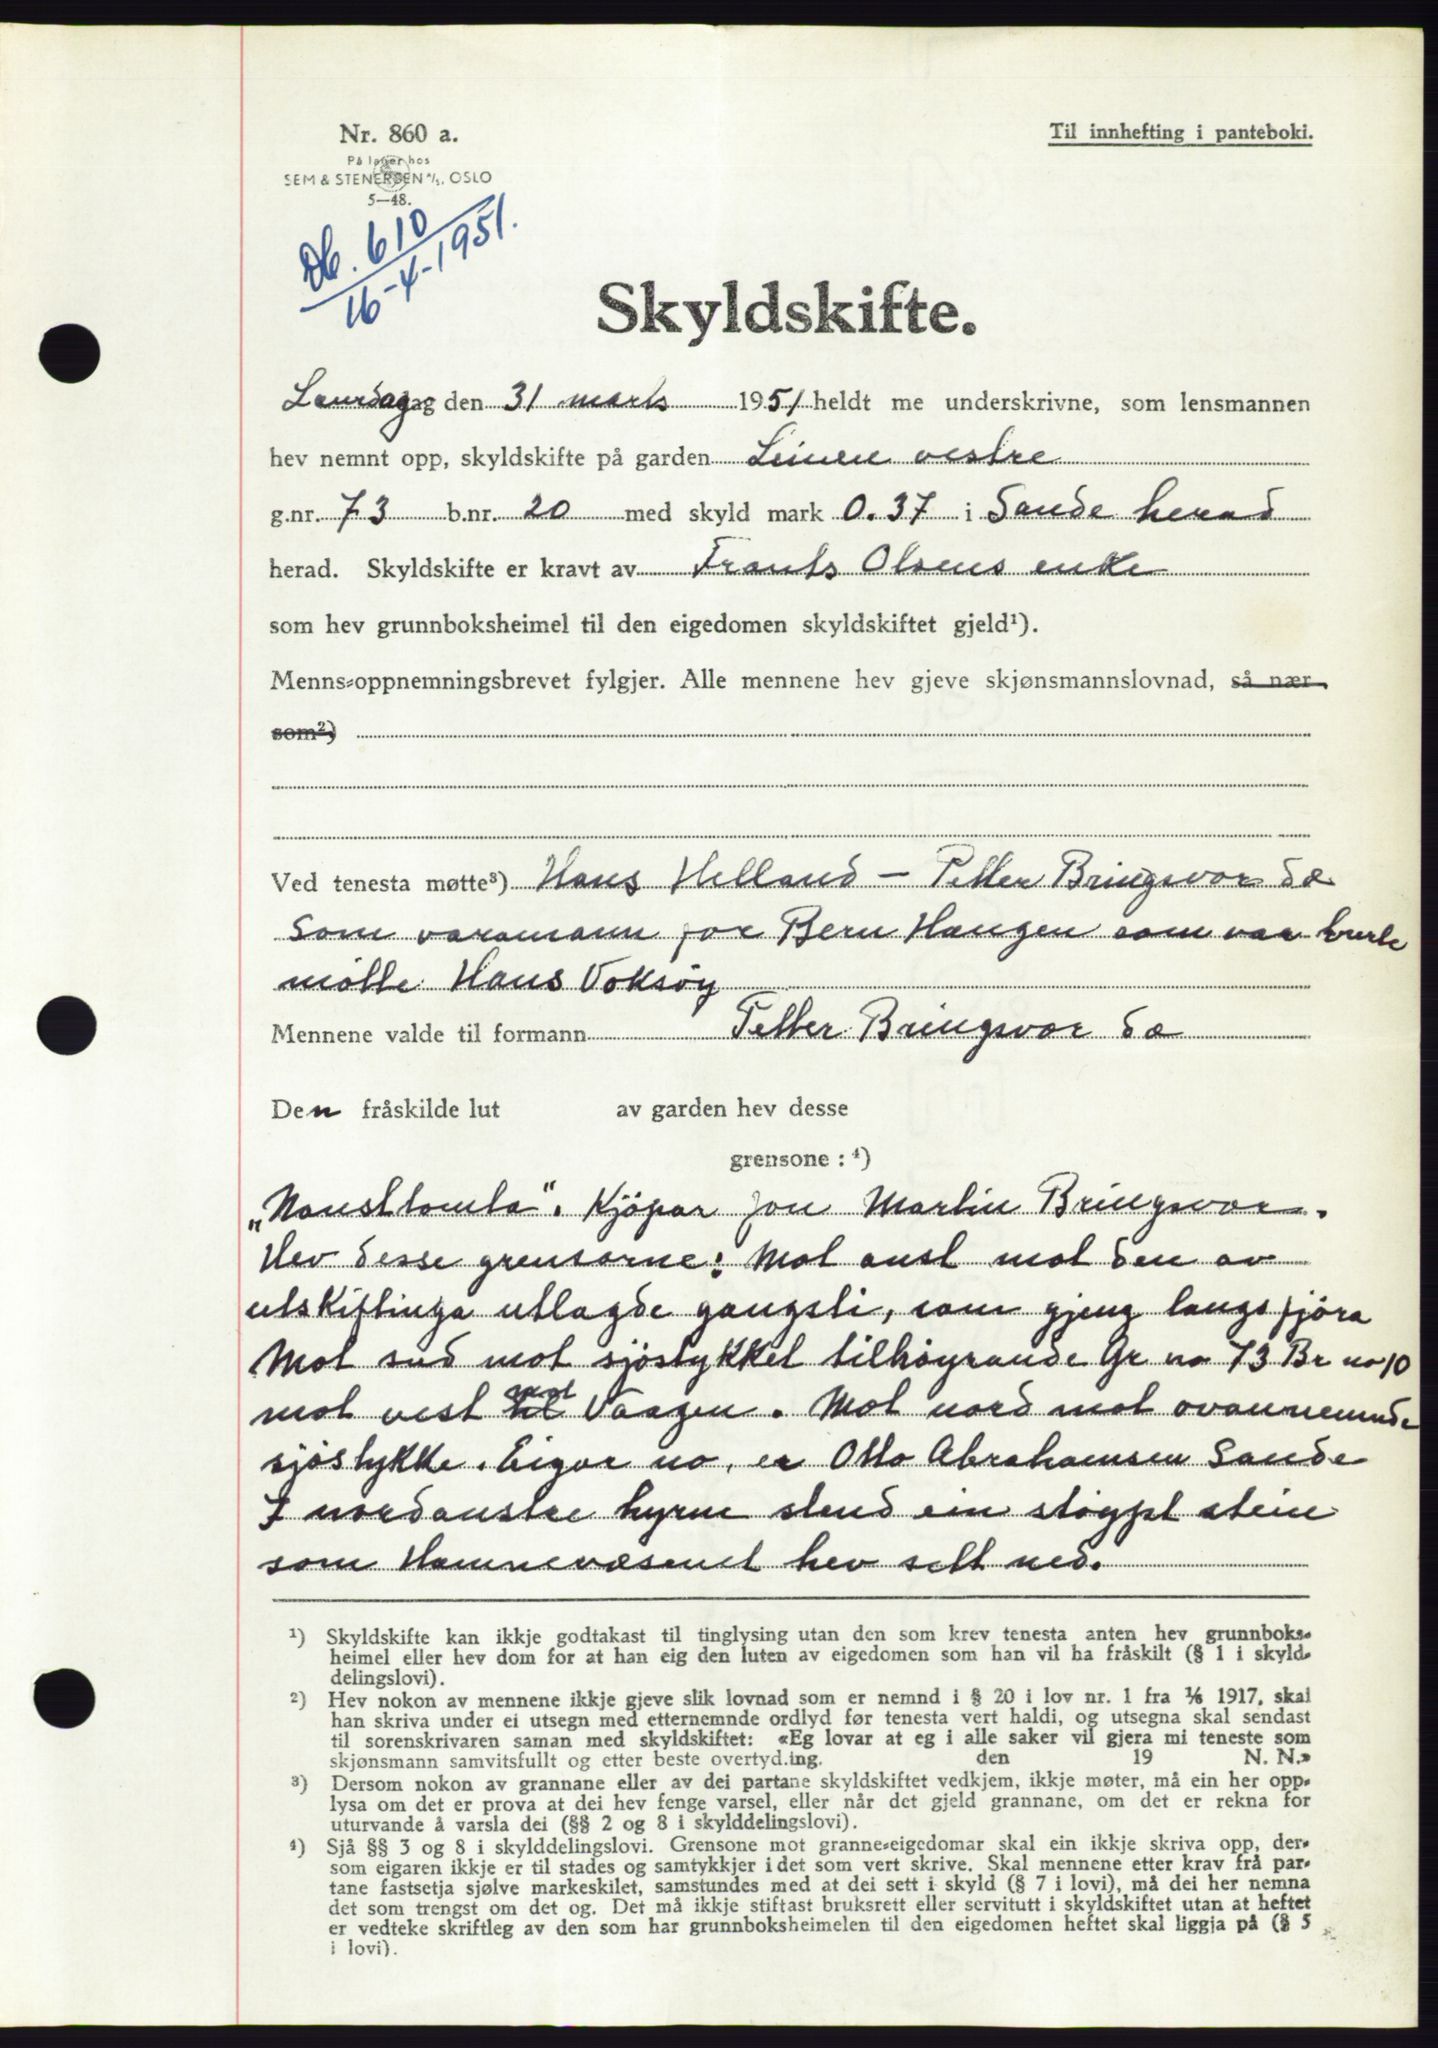 Nr. 860 a.
På lager hos
SEM & STENERSEN A/S, OSLO
5—48.
Til innhefting i panteboki.
Db. 610
16-4-1951.
Skyldskifte.
Laurdag ag den 31 marts 1951 heldt me underskrivne, som lensmannen
hev nemnt opp, skyldskifte på garden Leinen vestre
g.nr. 73 b.nr. 20 med skyld mark 0.37 i Sande herad
herad. Skyldskifte er kravt av Frants Olsens enke
som hev grunnboksheimel til den eigedomen skyldskiftet gjeld¹).
Menns-oppnemningsbrevet fylgjer. Alle mennene hev gjeve skjønsmannslovnad, så nær
som²)
Ved tenesta møtte³) Hans Helland — Petter Bringsvor dæ
som varamann for Bern Haugen som var burte
møtte Hans Voksøy
Mennene valde til formann Petter Bringsvor dæ
Den fråskilde lut av garden hev desse
grensone : ⁴)
„Nausttomta". Kjöpar Jon Martin Bringsvor.
Hev desse grensorne: Mot aust mot den av
utskiftinga utlagde gangsti, som gjeng langs fjöra
Mot sud mot sjöstykket tilhøyrande Gr no 73 Br no 10
mot vest til mot Vaagen. Mot nord mot ovannemnde
sjöstykke. Eigar no, er Otto Abrahamsen Sande
I nordaustre hyrne stend ein stöypt stein
som Hamnevæsenet hev sett ned.
¹) Skyldskifte kan ikkje godtakast til tinglysing utan den som krev tenesta anten hev grunnboks-
heimel eller hev dom for at han eig den luten av eigedomen som han vil ha fråskilt (§ 1 i skyld-
delingslovi).
²) Hev nokon av mennene ikkje gjeve slik lovnad som er nemnd i § 20 i lov nr. 1 fra ⅙ 1917, skal
han skriva under ei utsegn med etternemnde ordlyd før tenesta vert haldi, og utsegna skal sendast
til sorenskrivaren saman med skyldskiftet: «Eg lovar at eg i alle saker vil gjera mi teneste som
skjønsmann samvitsfullt og etter beste overtyd.ing. den 19 N. N.»
³) Dersom nokon av grannane eller av dei partane skyldskiftet vedkjem, ikkje møter, må ein her opp-
lysa om det er prova at dei hev fenge varsel, eller når det gjeld grannane, om det er rekna for
uturvande å varsla dei (§§ 2 og 8 i skylddelingslovi).
⁴) Sjå §§ 3 og 8 i skylddelingslovi. Grensone mot granne-eigedomar skal ein ikkje skriva opp, der-
som eigaren ikkje er til stades og samtykkjer i det som vert skrive. Skal mennene etter krav frå par-
tane fastsetja sjølve markeskilet, samstundes med at dei sett i skyld (§ 7 i lovi), må dei her nemna
det som trengst om det og. Det må ikkje stiftast bruksrett eller servitutt i skyldskiftet utan at heftet
er vedteke skriftleg av den som har grunnboksheimelen til den eigedomen heftet skal liggja på (§ 5
i lovi).